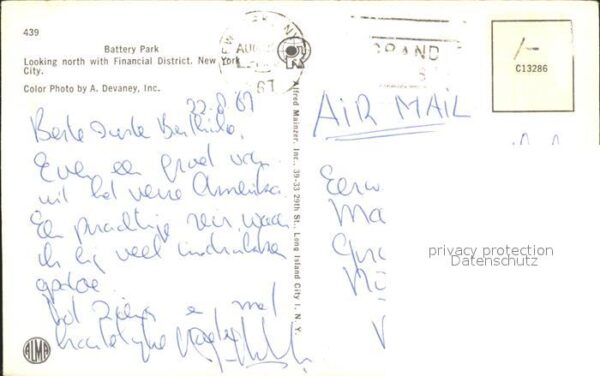 439
Battery Park
Looking north with Financial District. New York
City.
Color Photo by A. Devaney, Inc.
22.8.67
Beste Zuster
Even een groet van
uit het verre Amerika.
Een prachtige reis, waar
ik erg veel indrukken
opdoe.
Tot ziens en met
hartelijke
NEW YORK, N.Y.
AUG
67
GRAND
1/-
C13286
AIR MAIL
Alfred Mainzer, Inc., 39-33 29th St., Long Island City 1, N. Y.
Eerw
Ma
privacy protection
Datenschutz
ALMA